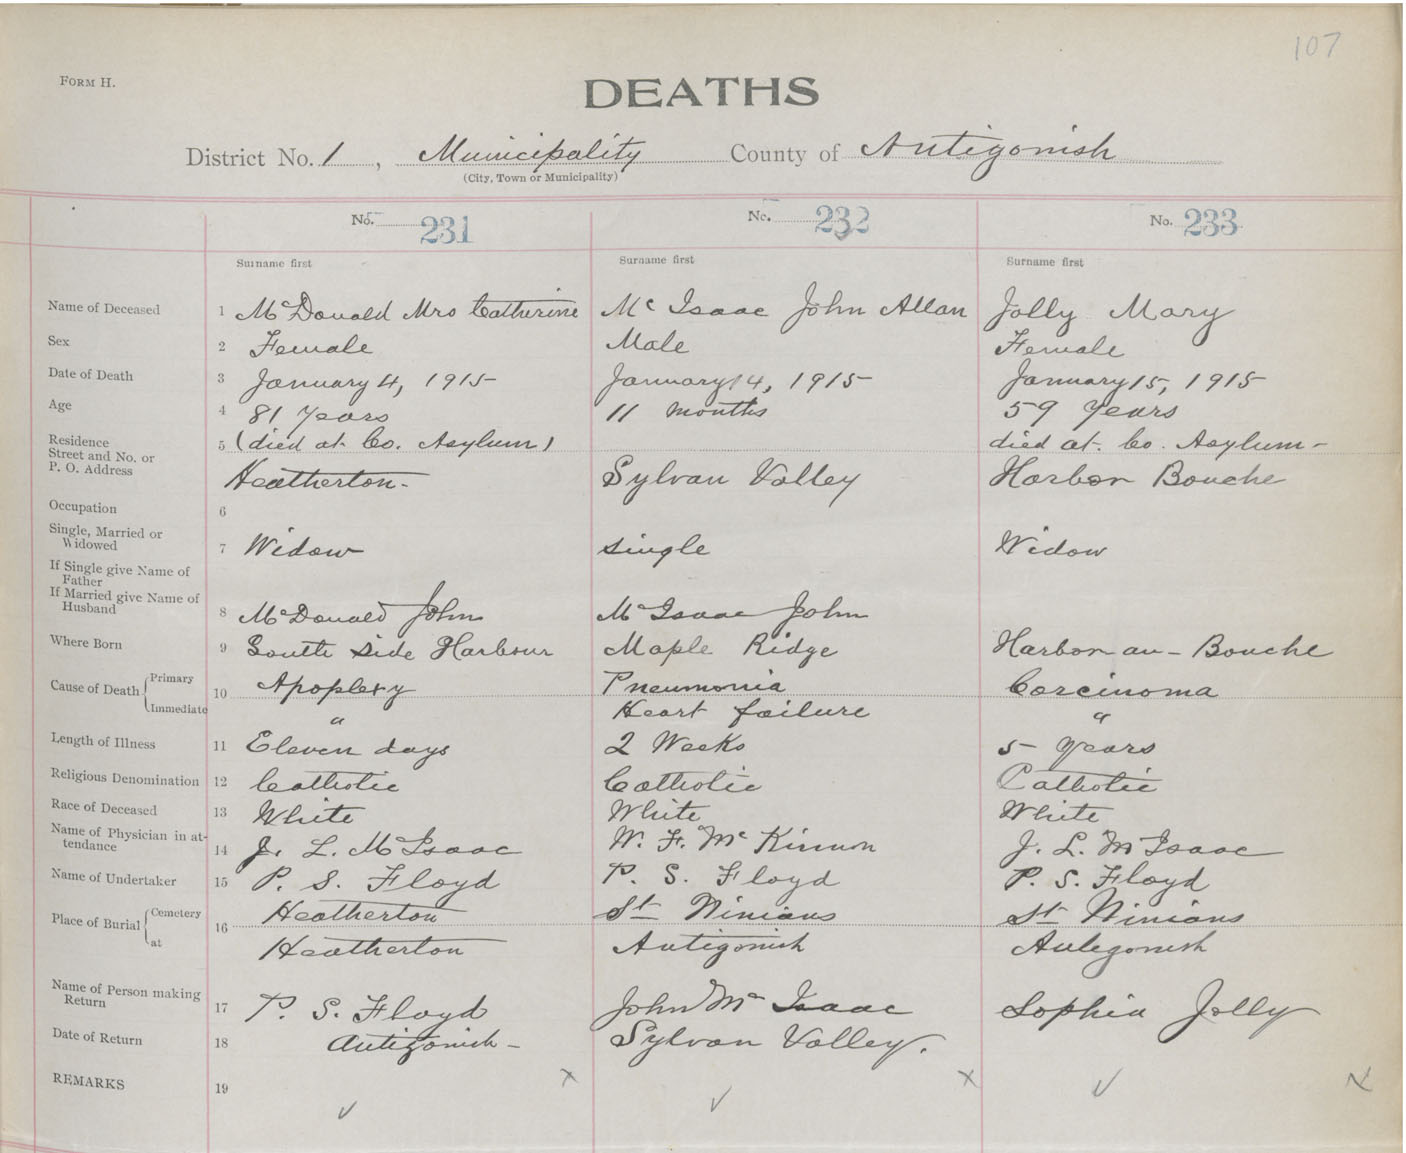 107
FORM H.
DEATHS
District No. 1, Municipality County of Antigonish
(City, Town or Municipality)
No. 231 No. 232 No. 233
Surname first Surname first Surname first
Name of Deceased 1 McDonald Mrs Catherine Mc Isaac John Allan Jolly Mary
Sex 2 Female Male Female
Date of Death 3 January 4, 1915 January 14, 1915 January 15, 1915
Age 4 81 Years 11 months 59 Years
Residence 5 (died at Co. Asylum) died at Co. Asylum-
Street and No. or
P. O. Address Heatherton- Sylvan Valley Harbor Bouche
Occupation 6
Single, Married or
Widowed 7 Widow single Widow
If Single give Name of
Father
If Married give Name of
Husband 8 McDonald John McIsaac John
Where Born 9 South Side Harbour Maple Ridge Harbor au-Bouche
Cause of Death Primary 10 Apoplexy Pneumonia Carcinoma
Immediate " Heart failure "
Length of Illness 11 Eleven days 2 Weeks 5 Years
Religious Denomination 12 Catholic Catholic Catholic
Race of Deceased 13 White White White
Name of Physician in at-
tendance 14 J. L. McIsaac W. F. Mc Kinnon J. L. McIsaac
Name of Undertaker 15 P. S. Floyd P. S. Floyd P. S. Floyd
Place of Burial Cemetery 16 Heatherton St Ninians St Ninians
at Heatherton Antigonish Antigonish
Name of Person making
Return 17 P. S. Floyd John Mc Isaac Sophia Jolly
Date of Return 18 Antigonish- Sylvan Valley.
REMARKS 19